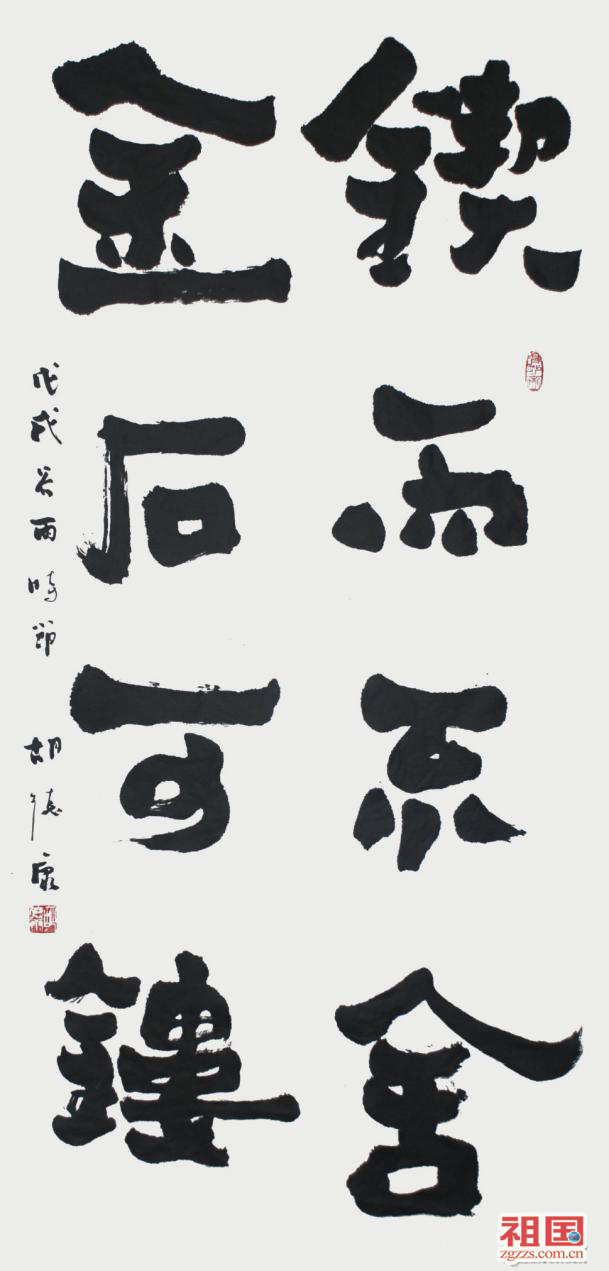 鍥而不舍
金石可鏤
戊戌谷雨時節 胡德康
祖国
zgzzs.com.cn